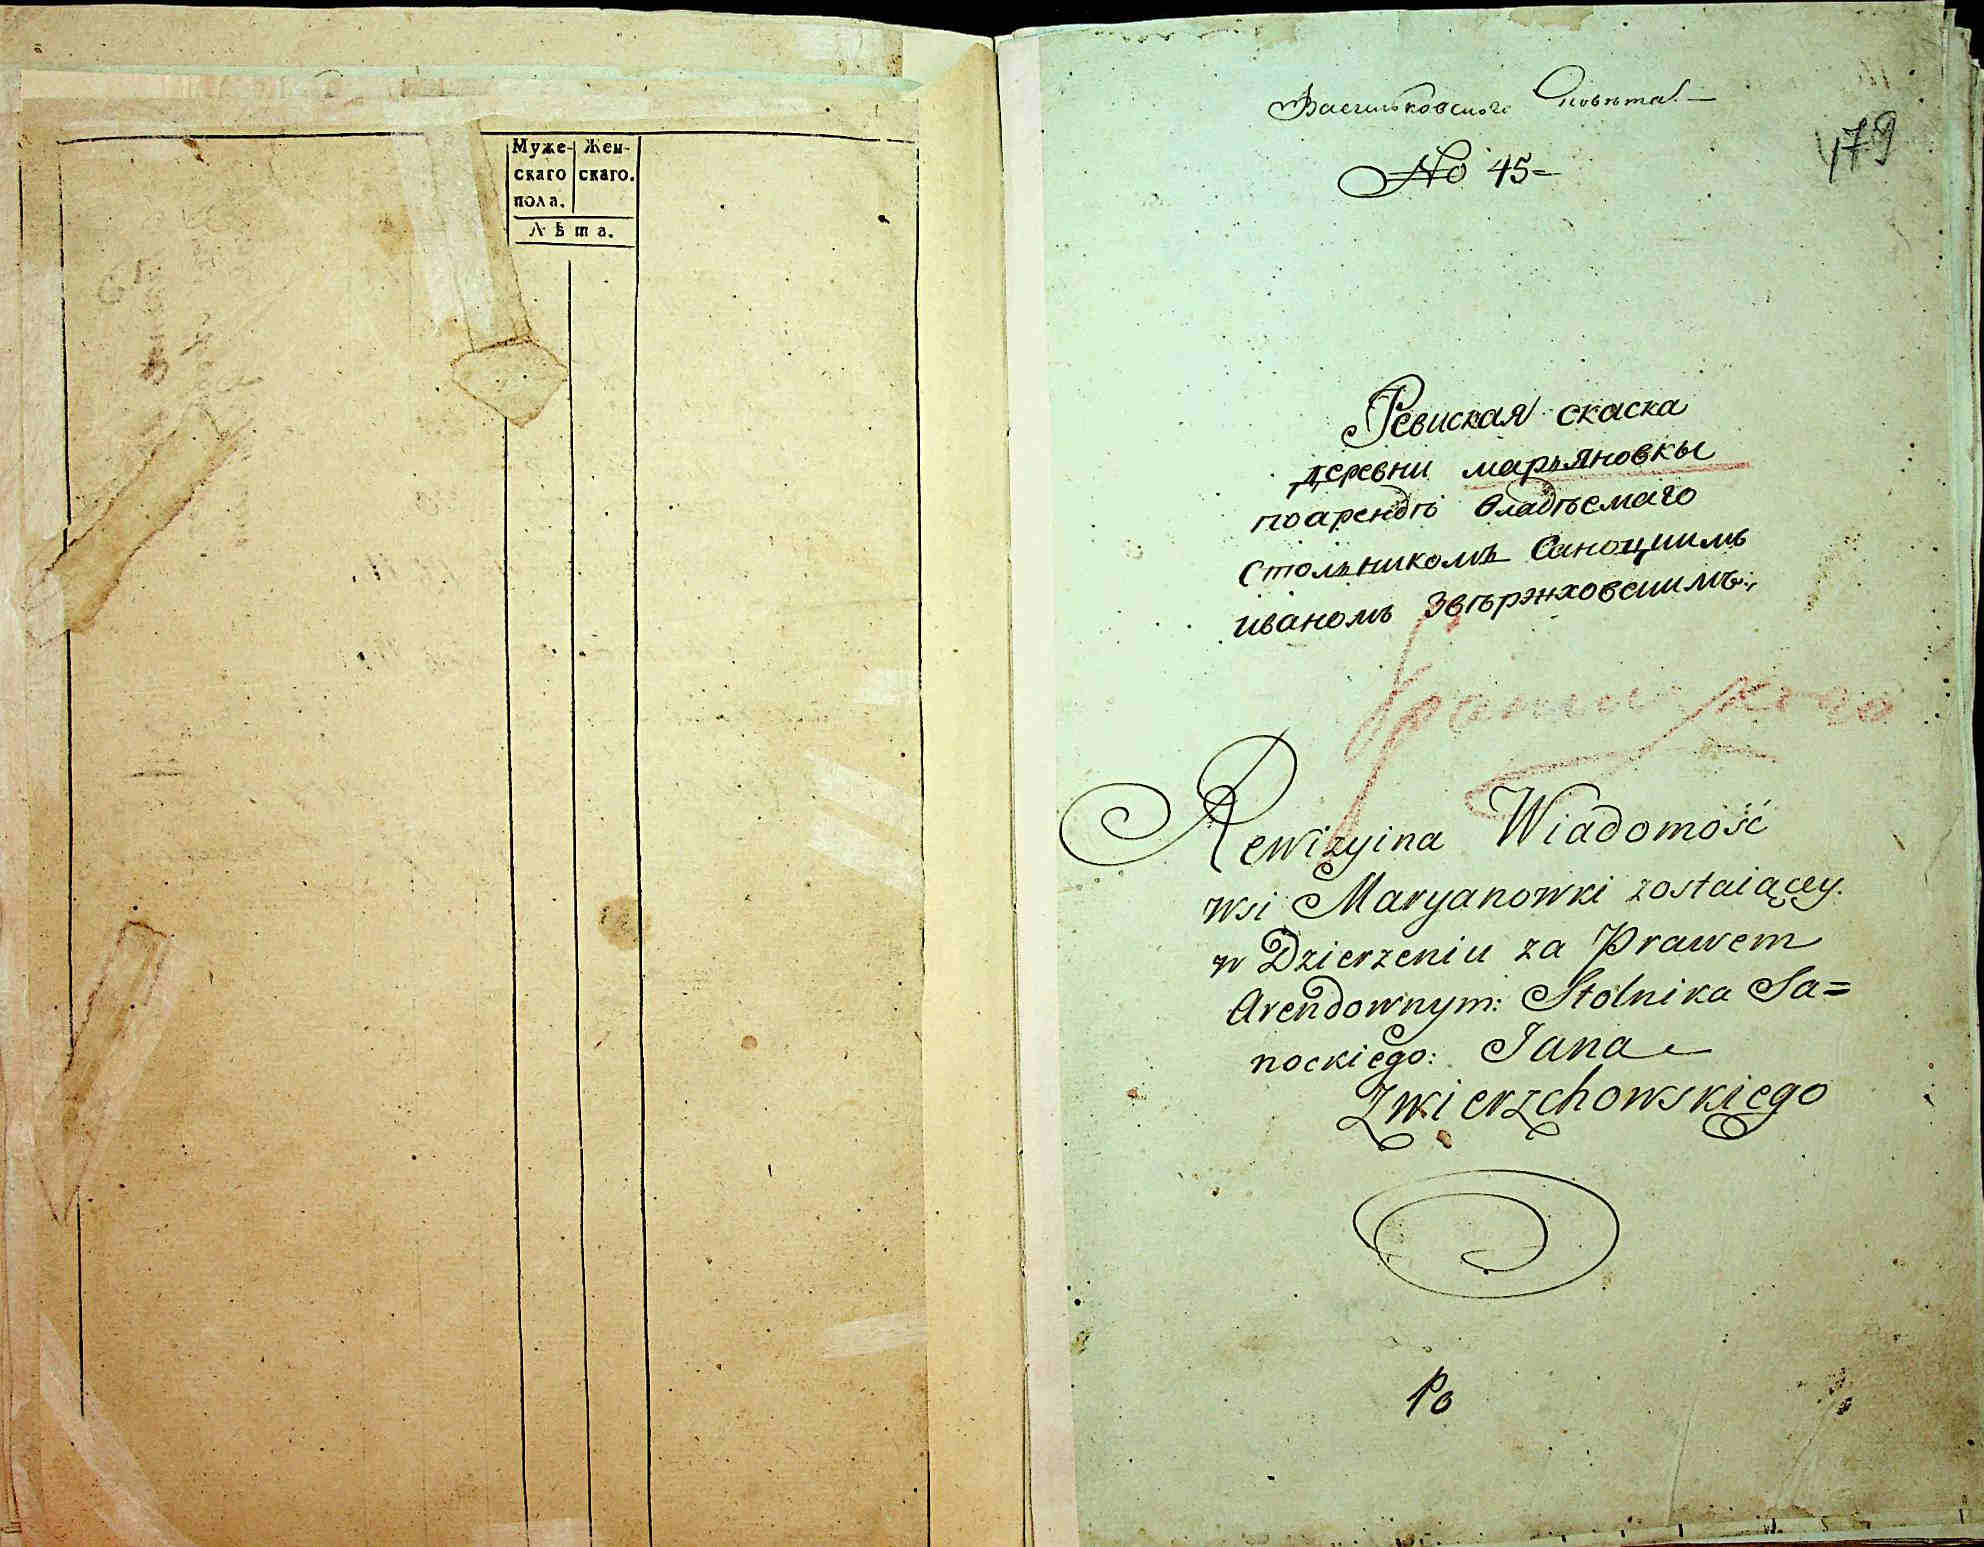 Муже- Жен-
скаго скаго.
пола.
Лѣта.
Васильковского Повѣта. —
479
No 45=
Ревиская скаска
деревни марьяновкы
поарендѣ владѣемаго
столникомъ Саноцкимъ
иваномъ Звѣрэнховскимъ
Rewizyina Wiadomość
wsi Maryanowki zostaiący
w Dzierzeniu za Prawem
Arendownym: Stolnika Sa=
nockiego: Jana
Zwierzchowskiego